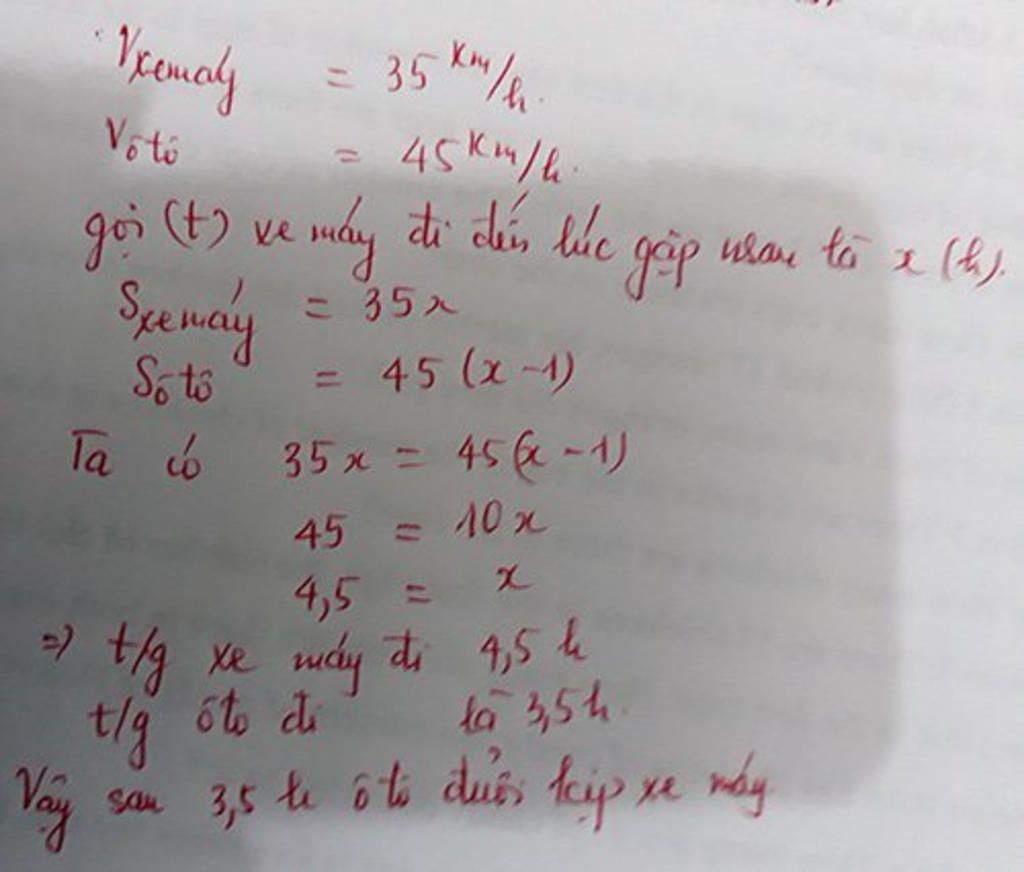 Vxemáy = 35 Km/h.
Vôtô = 45 Km/h.
gọi (t) xe máy đi đến lúc gặp nhau là x (h).
Sxemáy = 35x
Sôtô = 45 (x - 1)
Ta có 35x = 45(x - 1)
45 = 10x
4,5 = x
=> t/g xe máy đi 4,5 h
t/g ôtô đi là 3,5h.
Vậy sau 3,5 h ôtô đuổi kịp xe máy